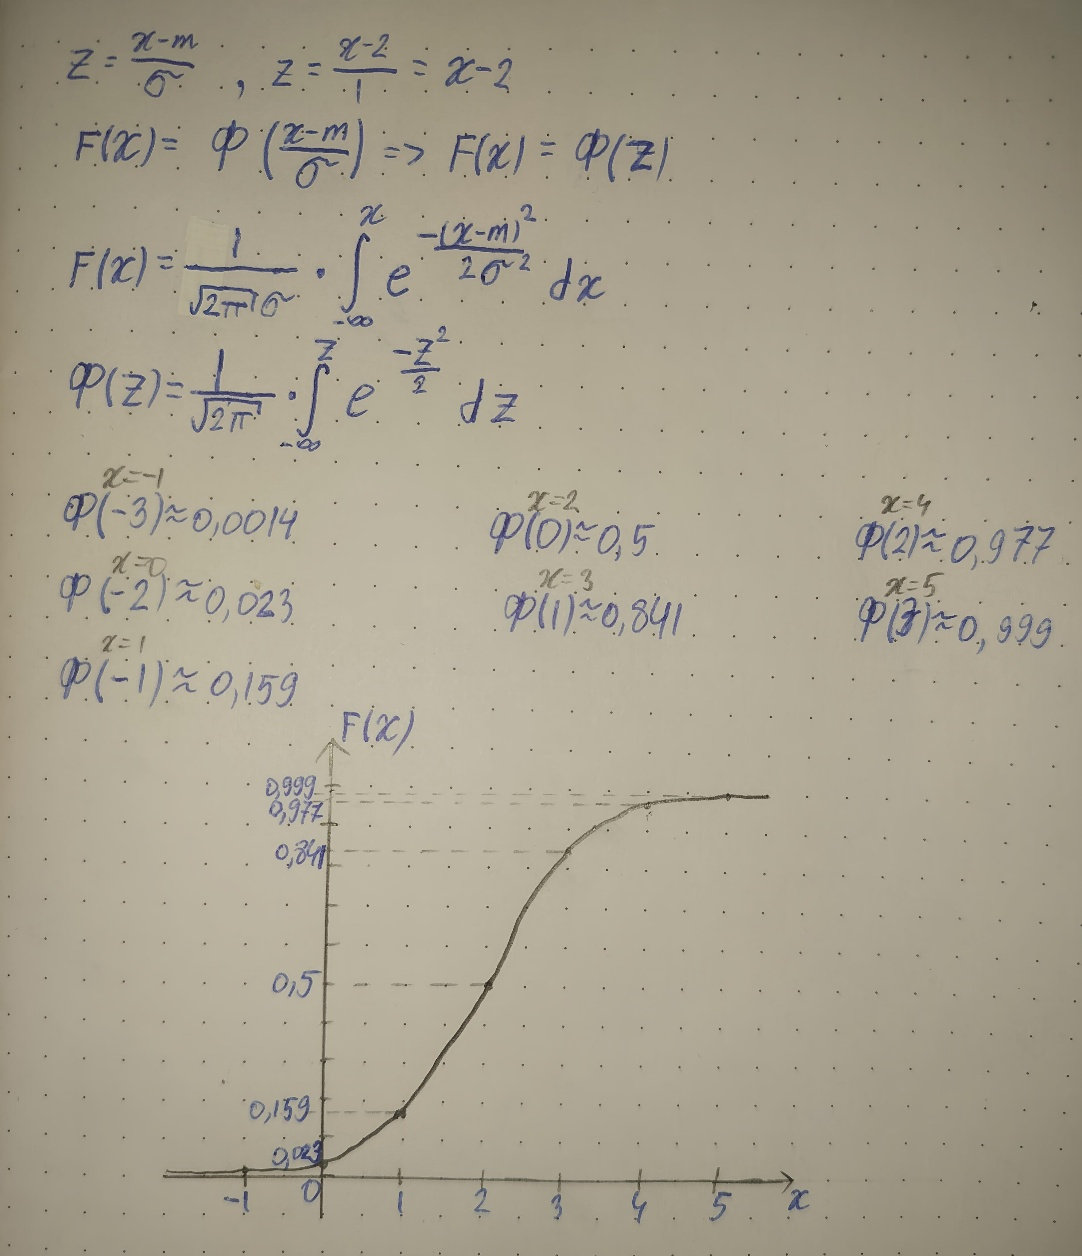 z = (x-m)/σ , z = (x-2)/1 = x-2
F(x) = Φ((x-m)/σ) => F(x) = Φ(z)
F(x) = 1/(√2π σ) · ∫_{-∞}^{x} e^{-(x-m)²/2σ²} dx
Φ(z) = 1/√2π · ∫_{-∞}^{z} e^{-z²/2} dz
x=-1
Φ(-3)≈0,0014
x=0
Φ(-2)≈0,023
x=1
Φ(-1)≈0,159
x=2
Φ(0)≈0,5
x=3
Φ(1)≈0,841
x=4
Φ(2)≈0,977
x=5
Φ(3)≈0,999
F(x)
0,999
0,977
0,841
0,5
0,159
0,023
-1 0 1 2 3 4 5 x